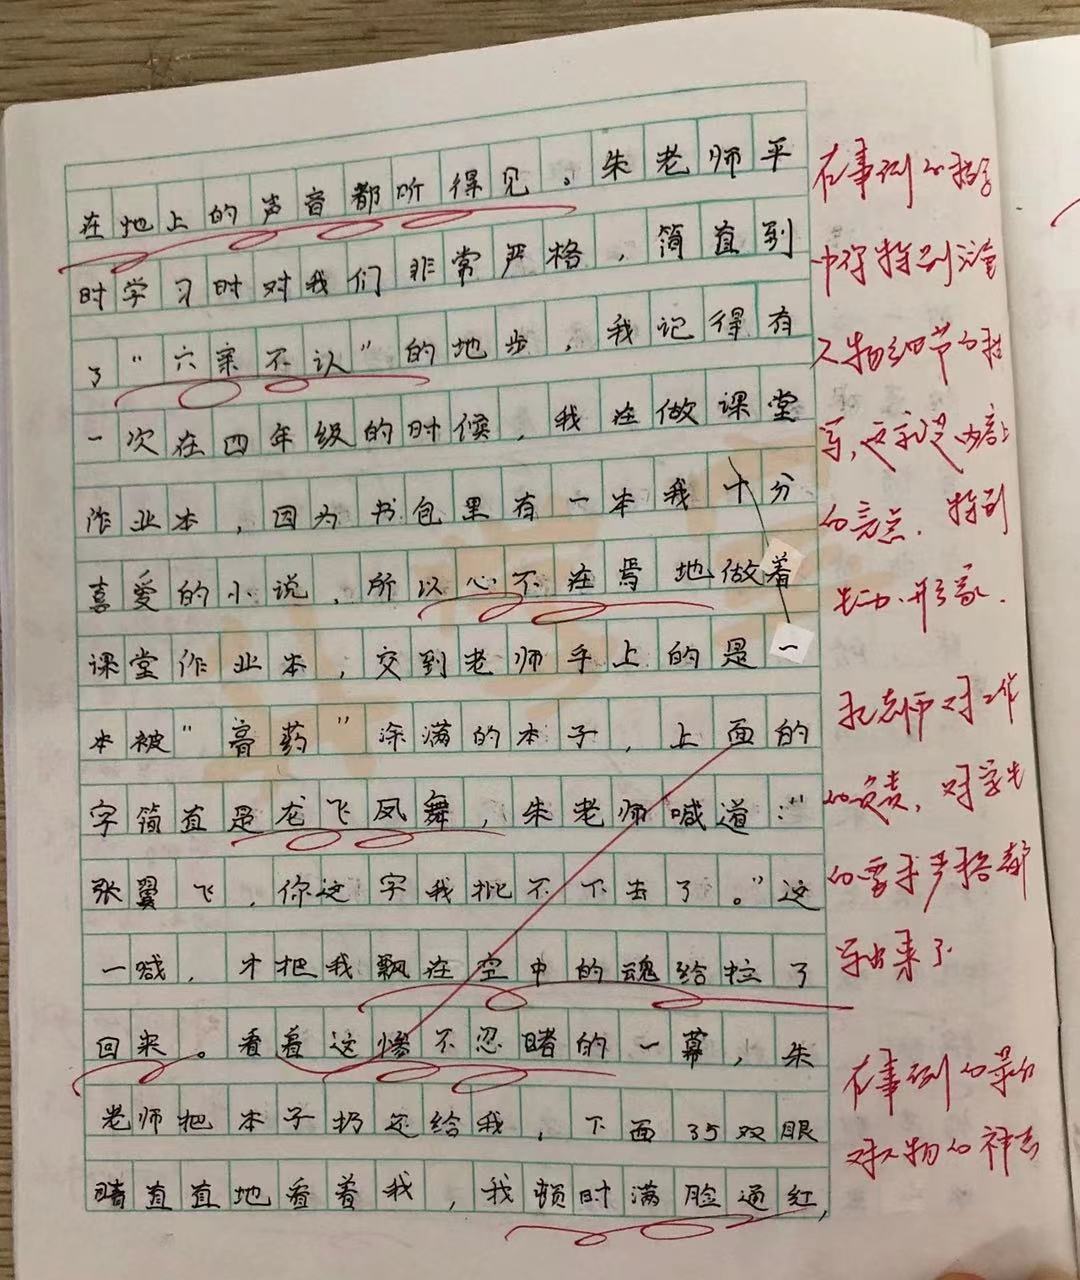 在地上的声音都听得见。朱老师平
时学习时对我们非常严格，简直到
了“六亲不认”的地步，我记得有
一次在四年级的时候，我在做课堂
作业本，因为书包里有一本我十分
喜爱的小说，所以心不在焉地做着
课堂作业本，交到老师手上的是一
本被“膏药”涂满的本子，上面的
字简直是龙飞凤舞，朱老师喊道：“
张翼飞，你这字我批不下去了。”这
一喊，才把我飘在空中的魂给拉了
回来。看着这惨不忍睹的一幕，朱
老师把本子扔还给我，下面35双眼
睛直直地看着我，我顿时满脸通红，
在事例的描写
中你特别注重
人物细节的描
写，这就是内容上
的亮点.特别
生动.形象.
把老师对工作
的负责，对学生
的要求严格都
写出来了.
在事例的
对人物的神态